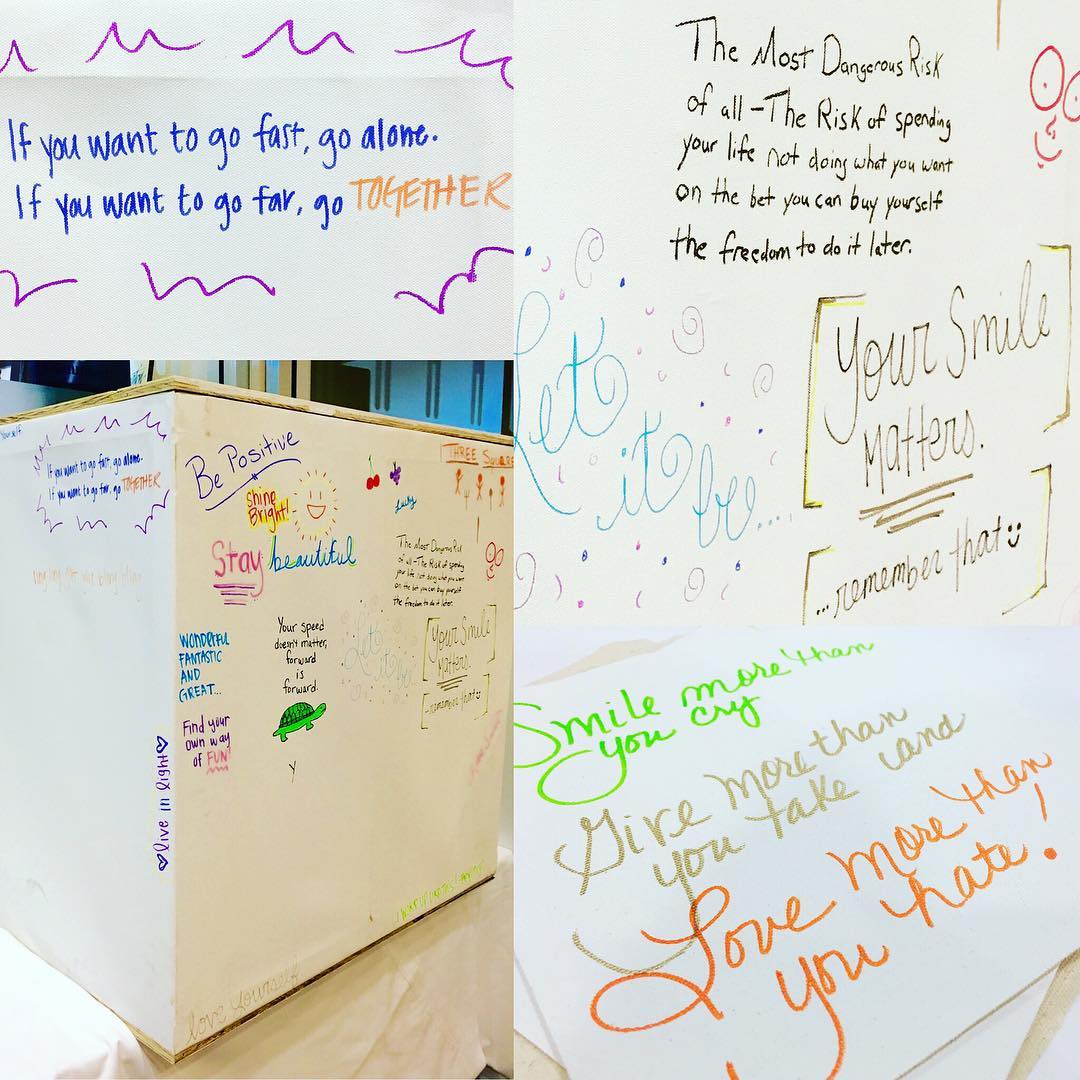 If you want to go fast, go alone.
If you want to go far, go TOGETHER
The Most Dangerous Risk
of all – The Risk of spending
your life not doing what you want
on the bet you can buy yourself
the freedom to do it later.
Let
it be....
Your Smile
Matters.
...remember that
yourself
If you want to go fast, go alone.
If you want to go far, go TOGETHER
Be Positive
Shine
Bright!
Stay beautiful
THREE SQUARE
Lucky
The Most Dangerous Risk
of all – The Risk of spending
your life not doing what you want
on the bet you can buy yourself
the freedom to do it later.
WONDERFUL
FANTASTIC
AND
GREAT...
Your speed
doesn't matter,
forward
is
forward.
Let
it be...
Your Smile
Matters.
...remember that
Find your
own way
of FUN
live in light
Y
love yourself
Smile more than
you cry
Give more than
you take and
Love more than
you hate!